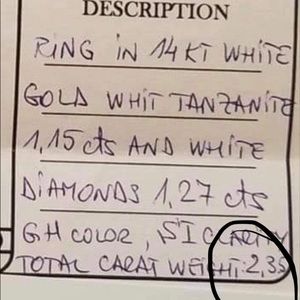 DESCRIPTION
RING IN 14KT WHITE
GOLD WHIT TANZANITE
1,15 cts AND WHITE
DIAMONDS 1,27 cts
GH COLOR, SI CLARITY
TOTAL CARAT WEIGHT: 2,35